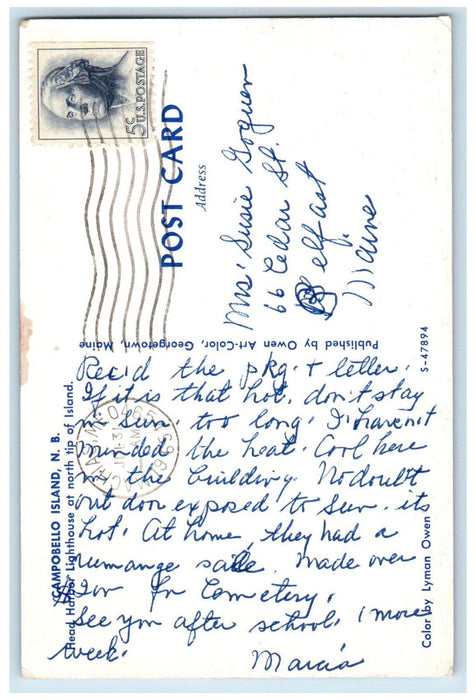 5c U.S. POSTAGE
POST CARD
Address
Mrs. Susie Goguen
66 Cedar St.
Belfast
Maine
Published by Owen Art-Color, Georgetown, Maine
S-47894
CAMPOBELLO ISLAND, N. B.
Head Harbor Lighthouse at north tip of Island.
Color by Lyman Owen
Rec'd the pkg. + letter.
If it is that hot, don't stay
in sun. too long. I haven't
minded the heat. Cool here
in the building. No doubt
out door exposed to sun. its
hot. At home, they had a
rumange sale. made over
$200 for Cemetery.
See you after school. 1 more
week.
Marcia